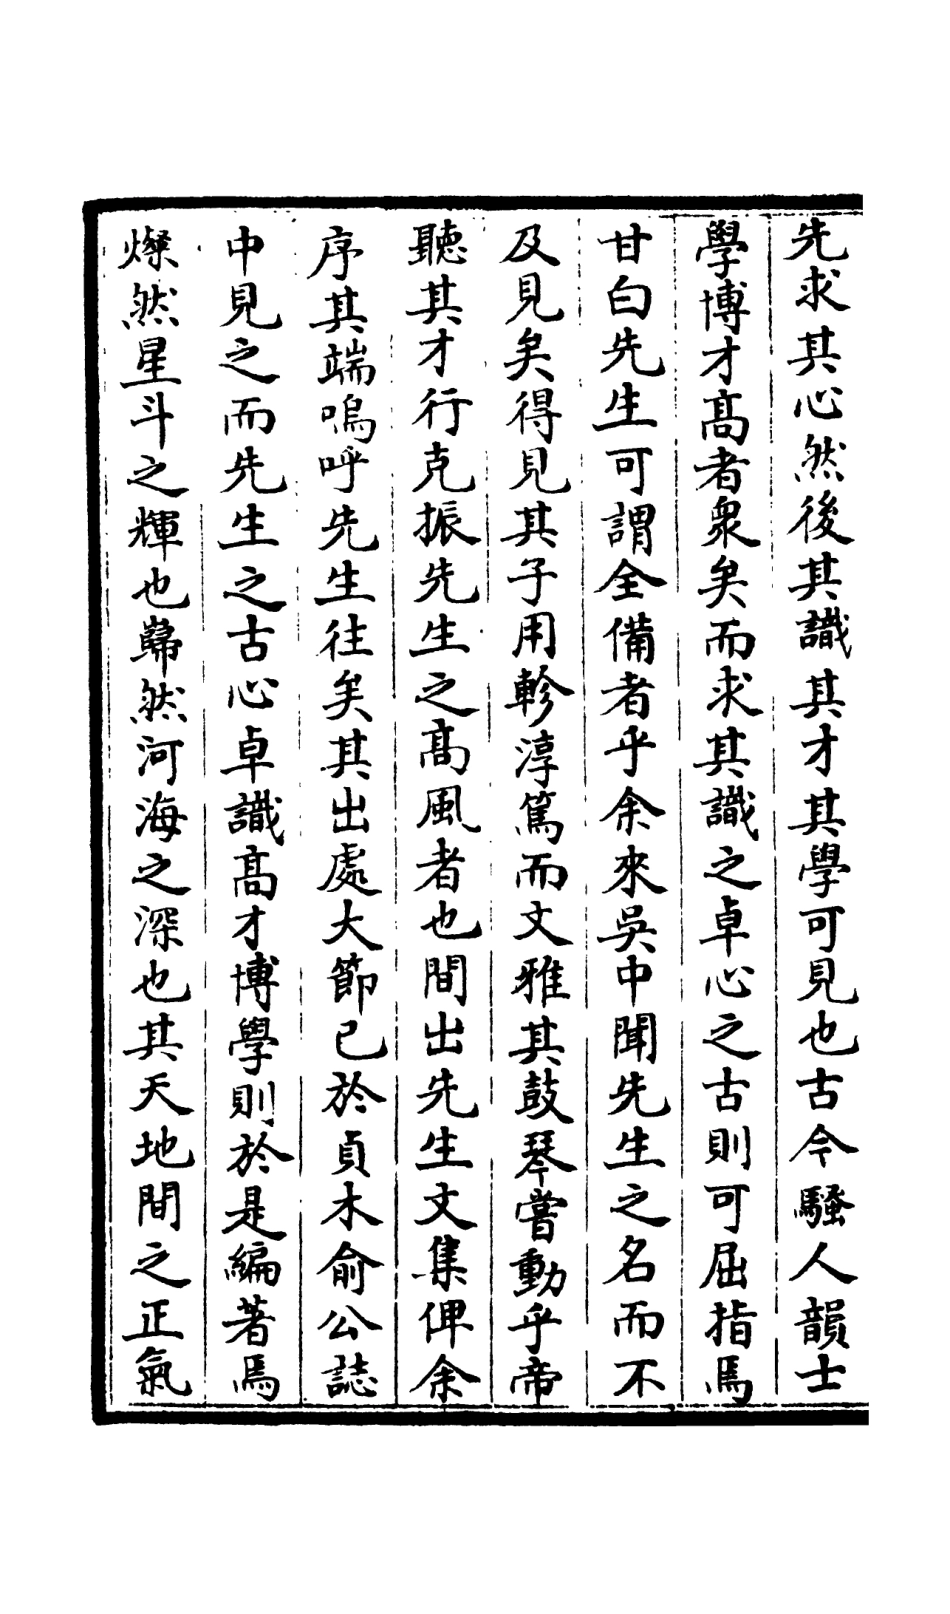 先求其心然後其識其才其學可見也古今騷人韻士
學博才髙者衆矣而求其識之卓心之古則可屈指焉
甘白先生可謂全備者乎余來吳中聞先生之名而不
及見矣得見其子用軫淳篤而文雅其鼓琴嘗動乎帝
聽其才行克振先生之髙風者也間出先生文集俾余
序其端嗚呼先生往矣其出處大節已於貞木俞公誌
中見之而先生之古心卓識髙才博學則於是編著焉
燦然星斗之輝也歸然河海之深也其天地間之正氣